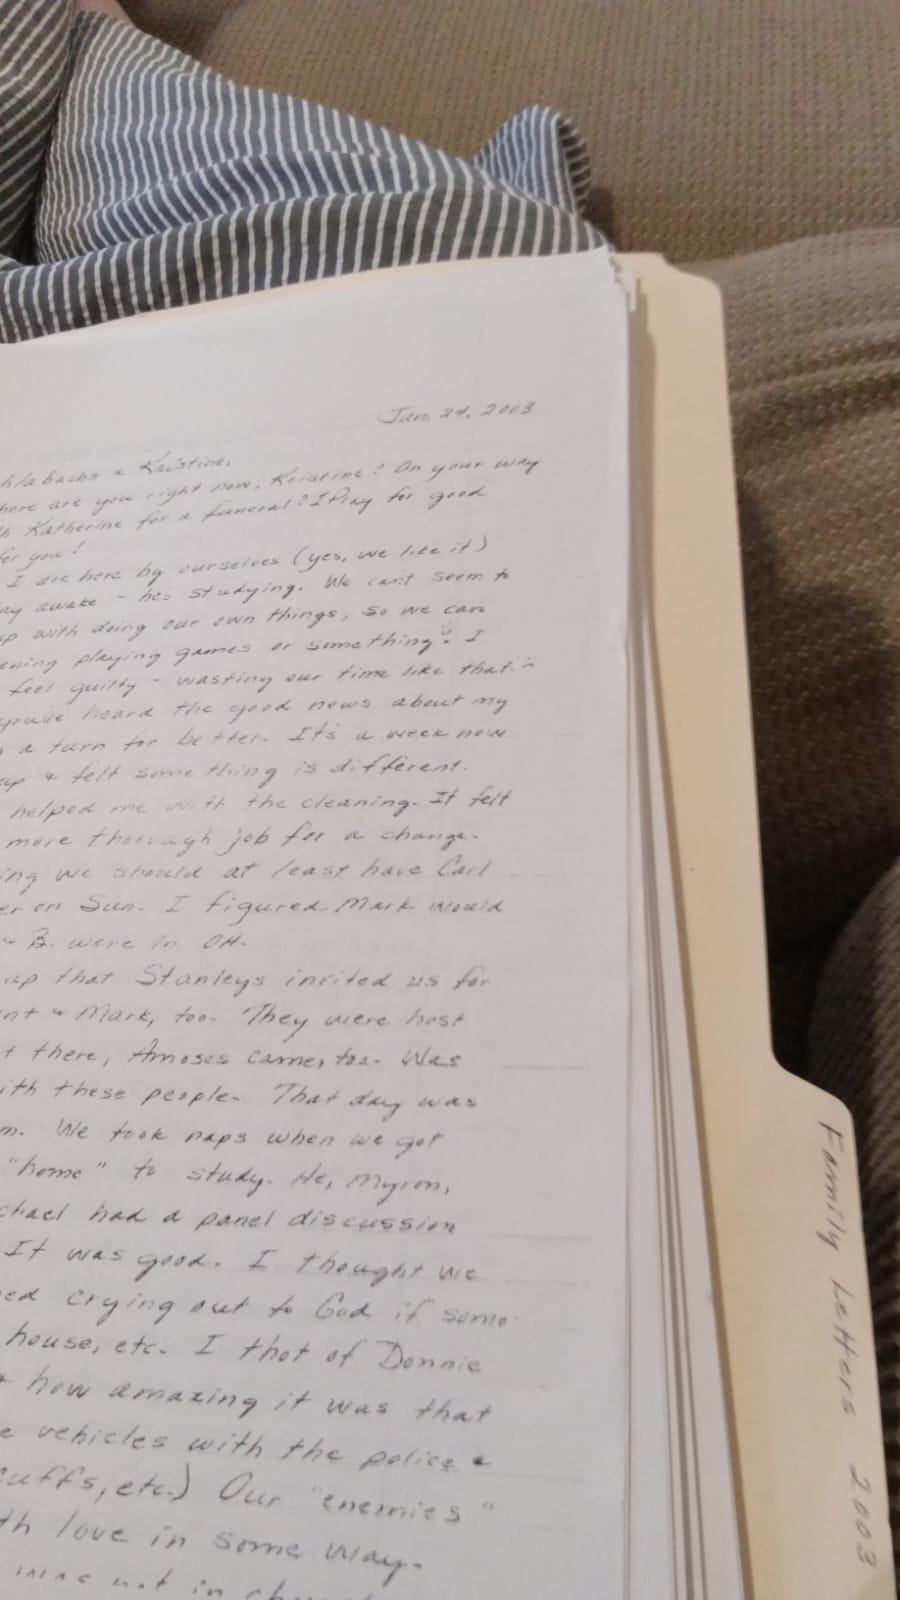 Jan. 24, 2003
hlabachs & Kristine,
here are you right now, Kristine? On your way
h Katherine for a funeral? I Pray for good
for you!
I are here by ourselves (yes, we like it)
ay awake - he's studying. We can't seem to
up with doing our own things, so we can
ening playing games or something. I
feel guilty - wasting our time like that.
you've heard the good news about my
a turn for better. It's a week now
up & felt something is different.
helped me with the cleaning. It felt
more thorough job for a change.
ing we should at least have Carl
er on Sun. I figured Mark would
& B. were in OH.
up that Stanleys invited us for
nt & Mark, too. They were host
t there, Amoses came, too. Was
ith these people. That day was
m. We took naps when we got
"home" to study. He, Myron,
chael had a panel discussion
It was good. I thought we
ed crying out to God if some
house, etc. I thot of Donnie
& how amazing it was that
e vehicles with the police &
cuffs, etc.) Our "enemies"
th love in some way.
was not in church
Family Letters 2003